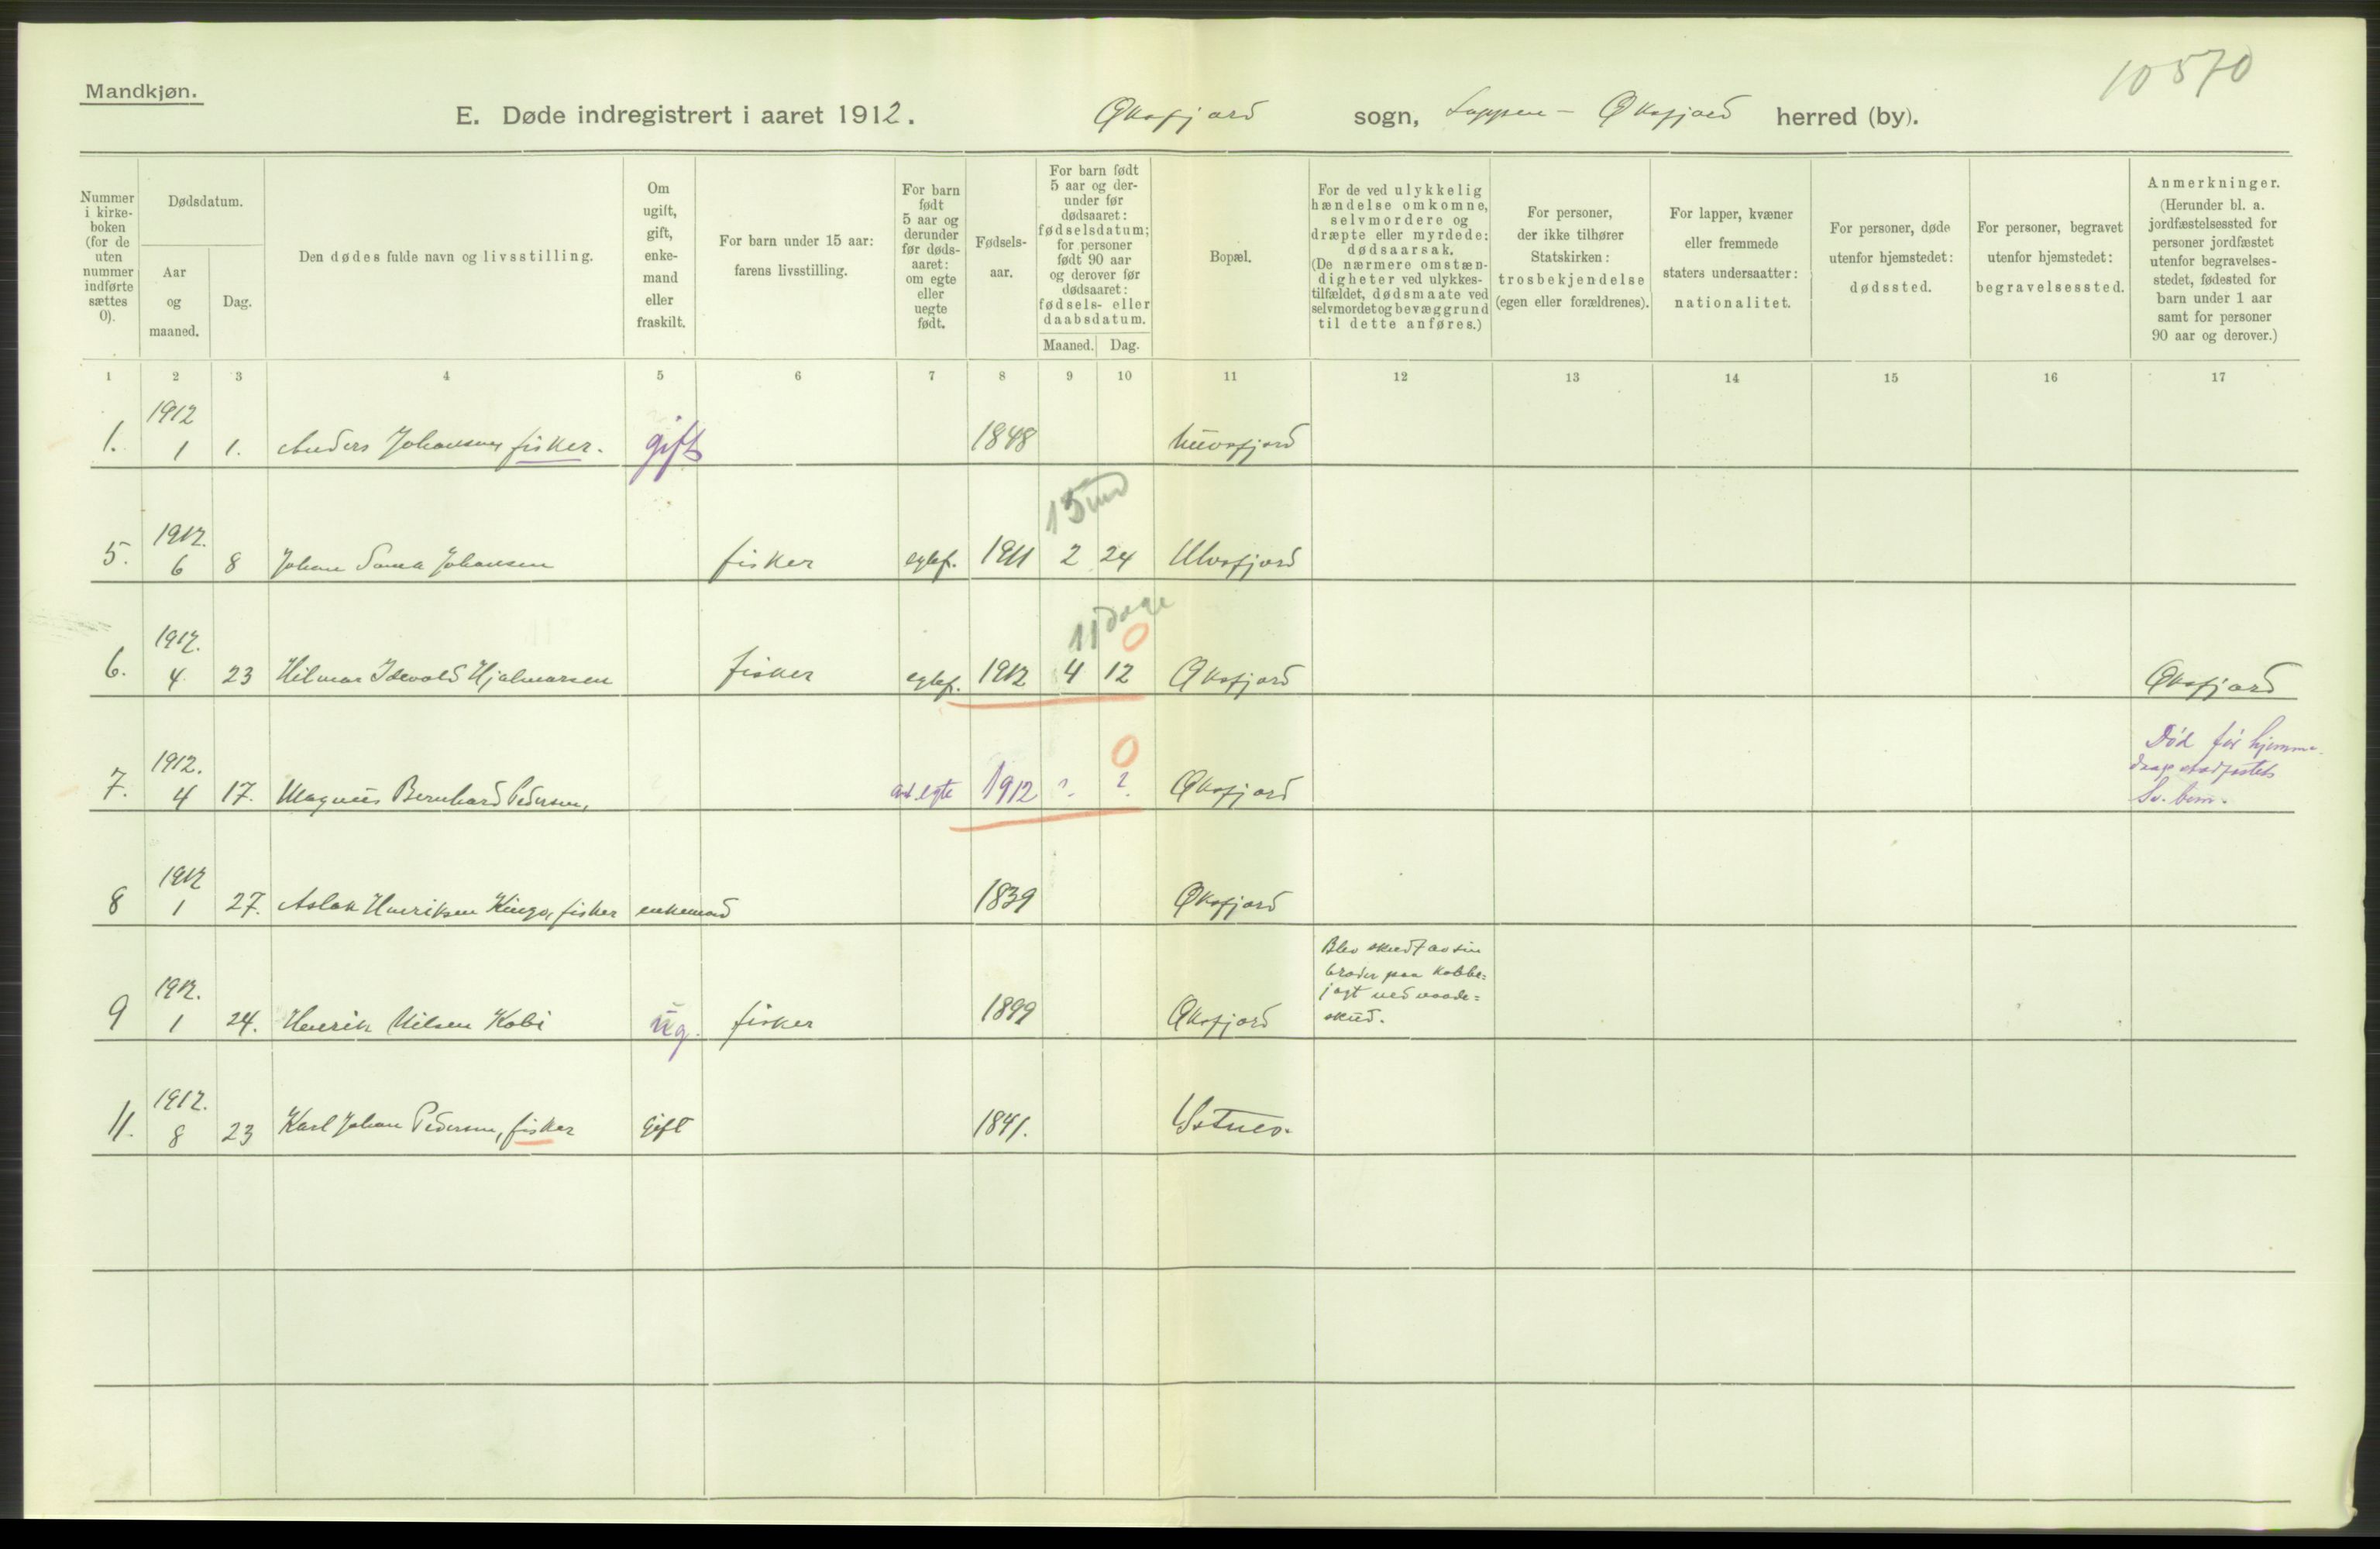 10570
Mandkjøn.
E. Døde indregistrert i aaret 1912. Øksfjord sogn, Loppen - Øksfjord herred (by).
Nummer i kirke- boken (for de uten nummer indførte sættes 0).
Dødsdatum.
Aar og maaned.
Dag.
Den dødes fulde navn og livsstilling.
Om ugift, gift, enke- mand eller fraskilt.
For barn under 15 aar: farens livsstilling.
For barn født 5 aar og derunder før døds- aaret: om egte eller uegte født.
Fødsels- aar.
For barn født 5 aar og der- under før dødsaaret: fødselsdatum; for personer født 90 aar og derover før dødsaaret: fødsels- eller daabsdatum.
Maaned. Dag.
Bopæl.
For de ved ulykkelig hændelse omkomne, selvmordere og dræpte eller myrdede: dødsaarsak. (De nærmere omstæn- digheter ved ulykkes- tilfældet, dødsmaate ved selvmordet og bevæggrund til dette anføres.)
For personer, der ikke tilhører Statskirken: trosbekjendelse (egen eller forældrenes).
For lapper, kvæner eller fremmede staters undersaatter: nationalitet.
For personer, døde utenfor hjemstedet: dødssted.
For personer, begravet utenfor hjemstedet: begravelsessted.
Anmerkninger. (Herunder bl. a. jordfæstelsessted for personer jordfæstet utenfor begravelses- stedet, fødested for barn under 1 aar samt for personer 90 aar og derover.)
1 2 3 4 5 6 7 8 9 10 11 12 13 14 15 16 17
1912
1. 1 1. Anders Johansen fisker. gift 1848
15 md
1912.
5. 6 8 Johan Johansen fisker egtef. 1911 2 24 Ulvsfjord
11 dage
0
1912.
6. 4. 23 Hilmar Hjalmarsen fisker egtef. 1912 4 12 Øksfjord Øksfjord
0
1912.
7. 4 17. Magnus Bernhard Pedersen, egte 1912 ?. ?. Øksfjord
Død før hjemme-
1912
8 1 27. Aslak Henriksen fisker enkemand 1839 Øksfjord
1912.
9 1 24. Henrik Nilsen Kobi ug. fisker 1899 Øksfjord
Blev skudt av sin
broder paa kobbe=
jagt ved vaade=
skud.
1912.
11. 8 23 Karl Johan Pedersen, fisker Gift 1841.